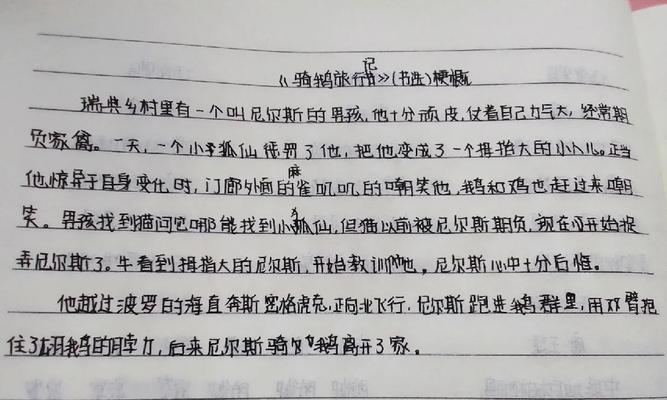 《骑鹅旅行记》(书选)梗概
瑞典乡村里有一个叫尼尔斯的男孩,他十分顽皮,仗着自己力气大,经常期
负家禽。一天,一个小狐仙惩罚了他,把他变成了一个拇指大的小人儿。正当
他惊异于自身变化时,门廊外面的麻雀叽叽的嘲笑他,鹅和鸡也赶过来嘲
笑。男孩找到猫问它哪能找到小狐仙,但猫以前被尼尔斯期负,现在开始捉
弄尼尔斯了。牛看到拇指大的尼尔斯,开始教训他,尼尔斯心中十分后悔。
他越过波罗的海直奔斯密格虎克,正向北飞行,尼尔斯跑进鹅群里,用双臂抱
住了鹅的脖力,后来尼尔斯骑鹅离开了家。